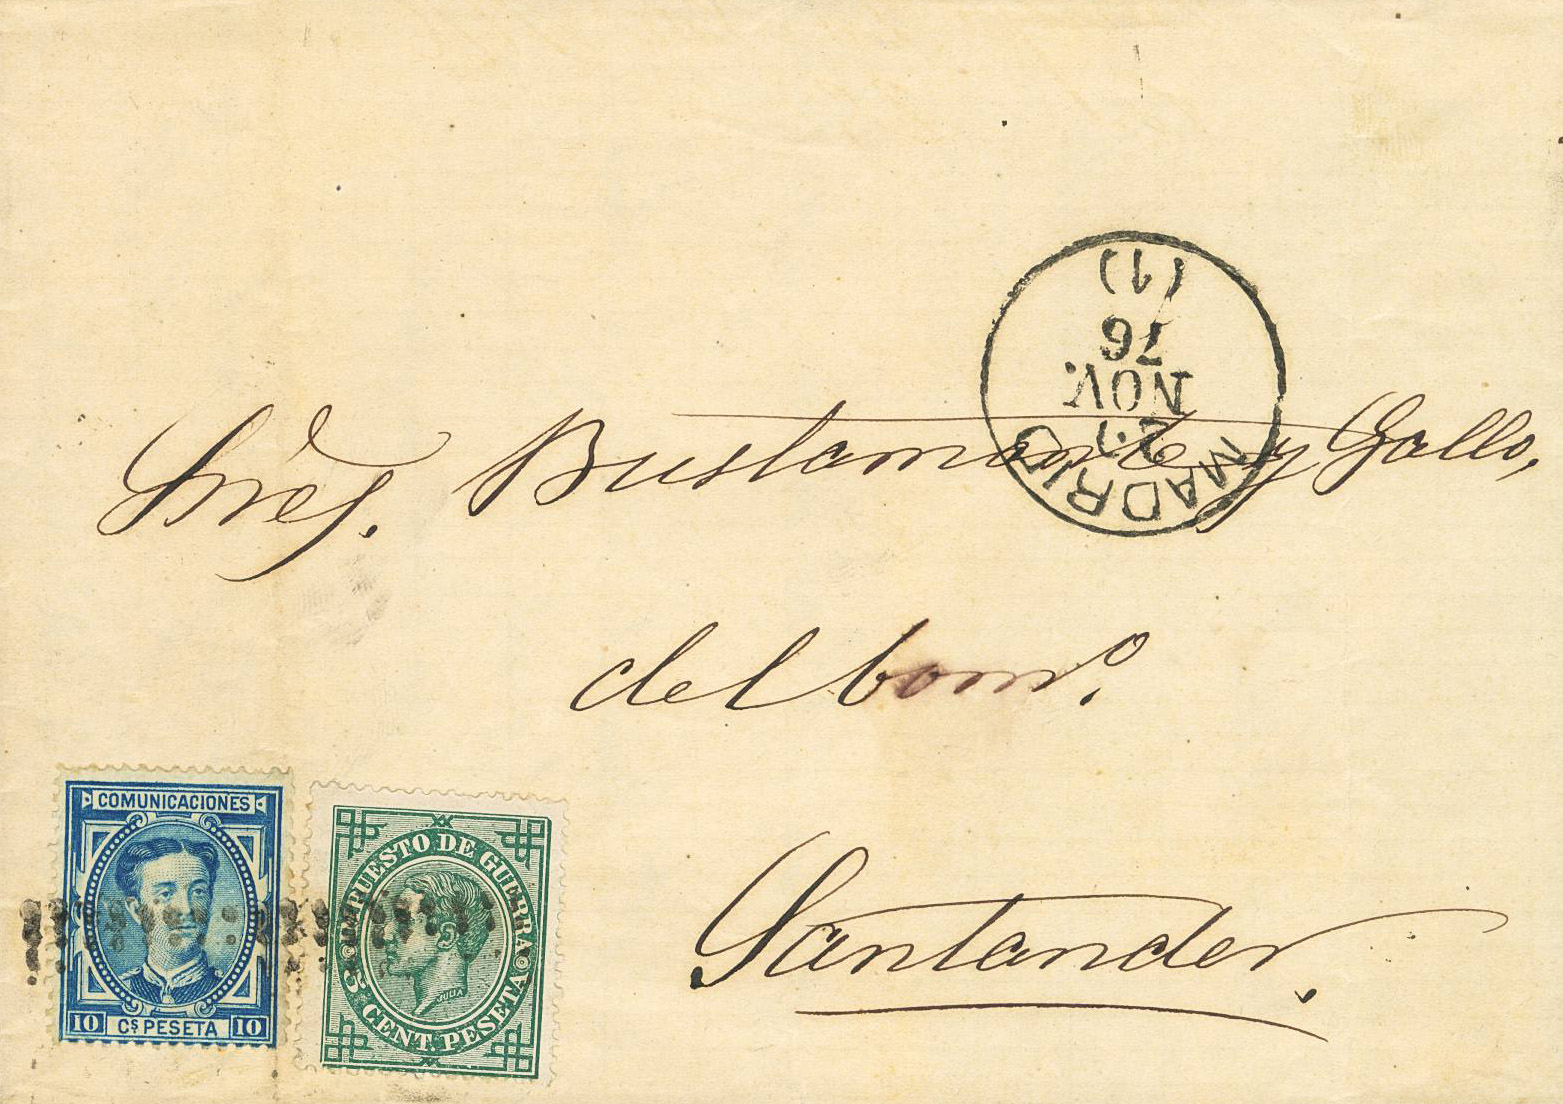 (1)
76
NOV.
27
MADRID
Sres. Bustamante y Gallo,
del comº.
Santander.
COMUNICACIONES
10 Cs PESETA 10
IMPUESTO DE GUERRA
5 CENT. PESETA
JULIA